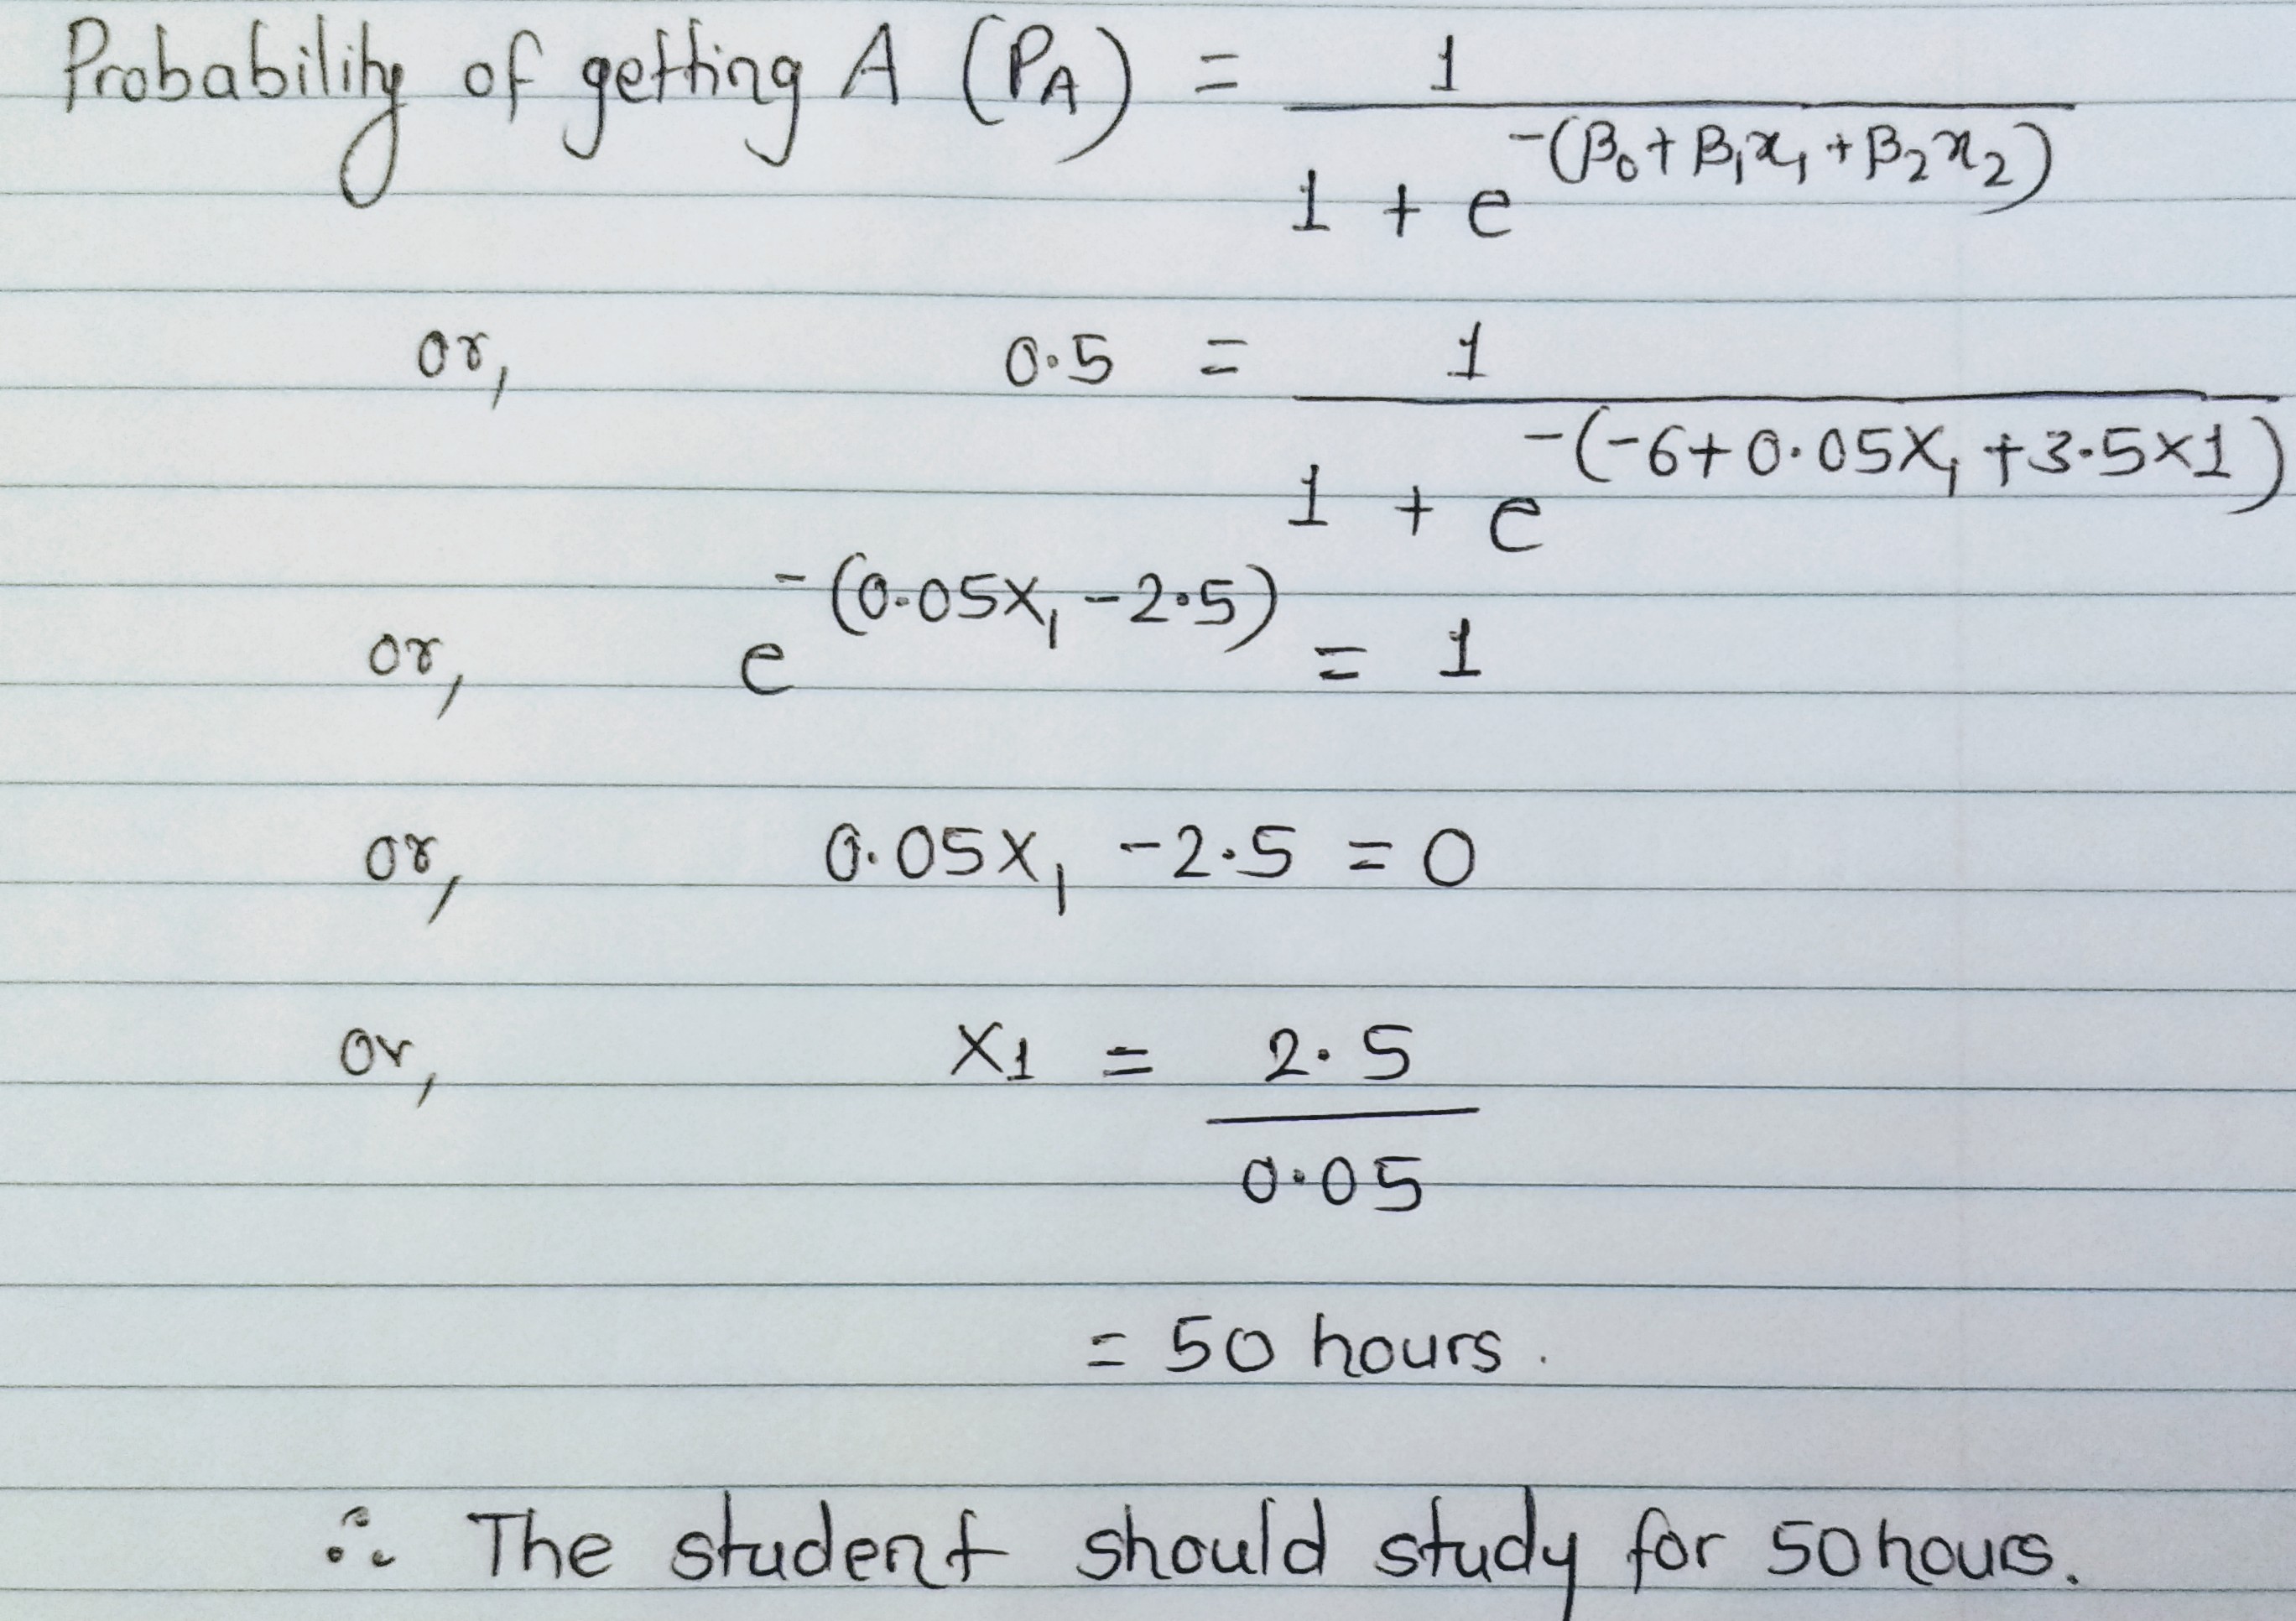 Probability of getting A (P_A) = 1 / (1 + e^-(β₀ + β₁x₁ + β₂x₂))
or, 0.5 = 1 / (1 + e^-(-6 + 0.05X₁ + 3.5×1))
or, e^-(0.05X₁ - 2.5) = 1
or, 0.05X₁ - 2.5 = 0
or, X₁ = 2.5 / 0.05
= 50 hours.
∴ The student should study for 50 hours.